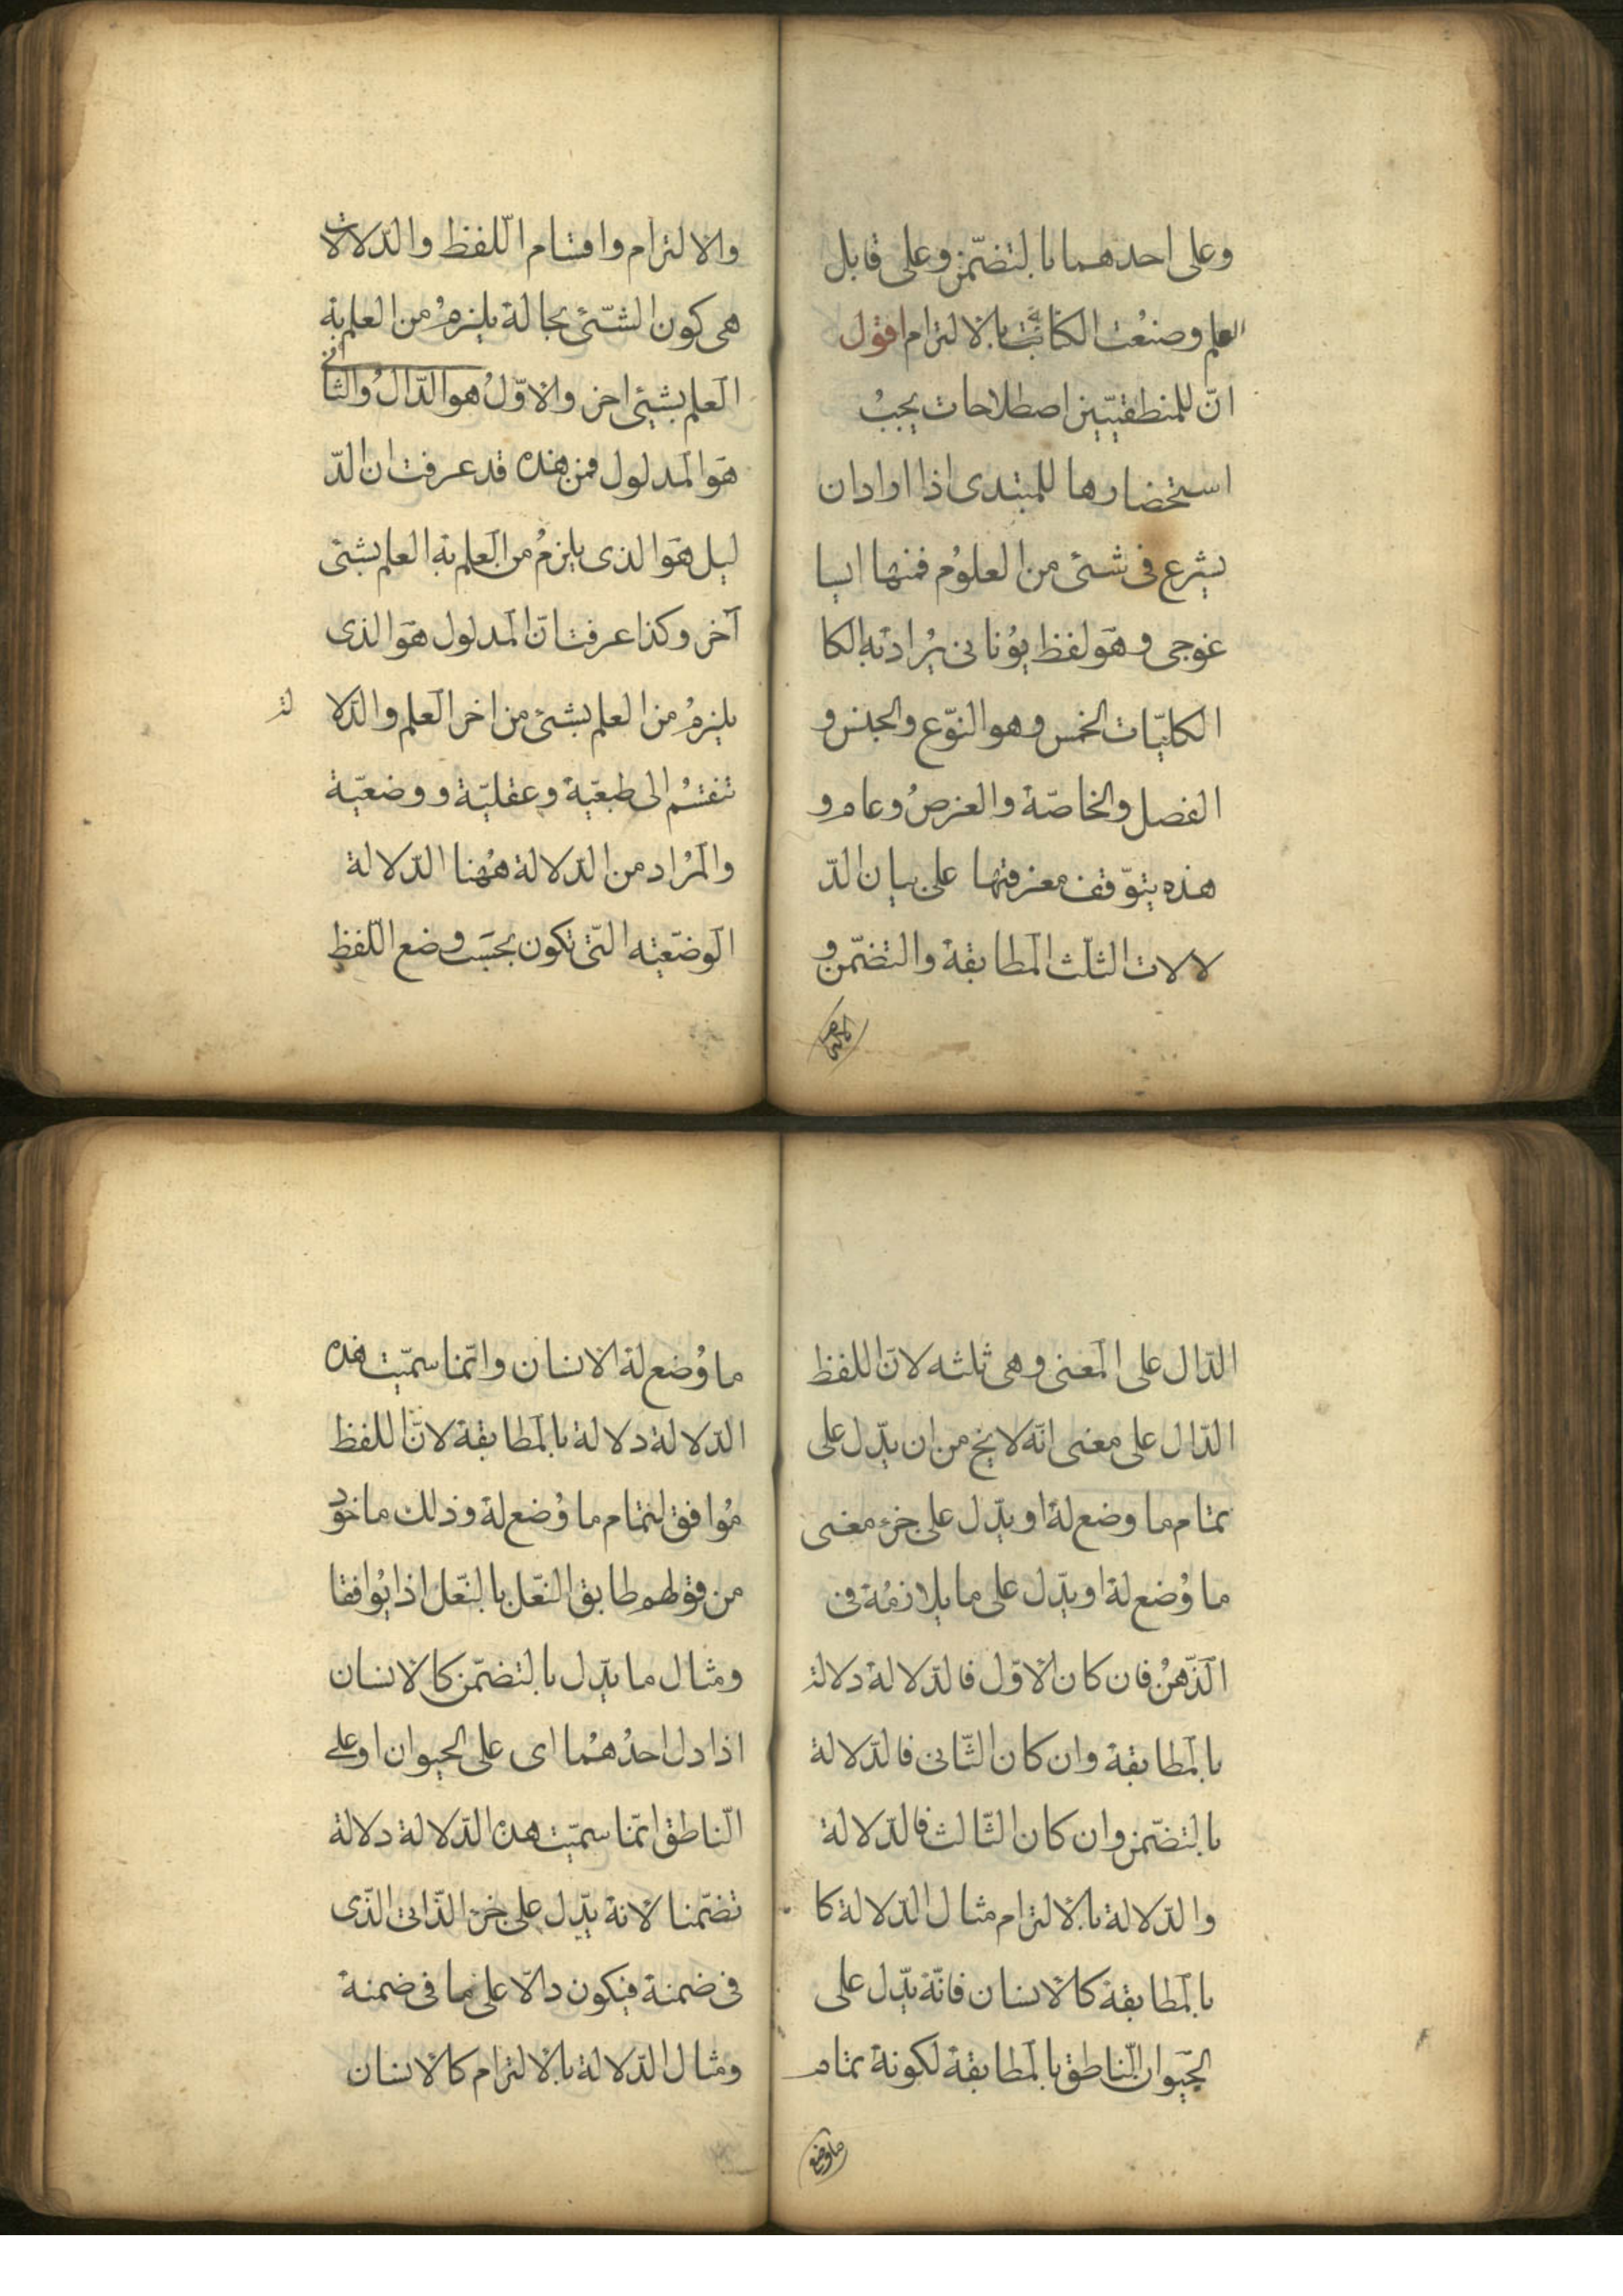 وعلى احدهما بالتضمّن وعلى قابل
العلم وصنعت الكتابت بالالتزام اقول
انّ للمنطقيّين اصطلاحات يجبُ
استحضارها للمبتدى اذا اراد ان
يشرع فى شئ من العلوُم فمنها ايسا
غوجى وهو لفظ يوُنانى يرُاد به الكا
الكليّات الخمس وهو النوّع والجنس و
الفصل والخاصّة والعرضُ وعام و
هذه يتوّقف معرفتها على بيان الدّ
لالات الثلث المطابقة والتضمّن و
الالتزام
والالتزام واقسام اللّفظ والدّلالات
هى كون الشّئ بحالة يلزمُ من العلم به
العلم بشئ اخر والاوّلُ هو الدّالُ والثانى
هو المدلول فمن هذه قد عرفت ان الدّ
ليل هو الذى يلزمُ من العلم به العلم بشئ
آخر وكذا عرفت انّ المدلول هو الذى
يلزمُ من العلم بشئ من اخر العلم والدّلا
لة
تنقسُم الى طبعيّة وعقليّة ووضعيّة
والمرُاد من الدّلالة ههُنا الدّلالة
الوضعيّه الّتى تكون بحسَب وضع اللّفظ
الدّال على المعنى وهى ثلثه لانّ اللفظ
الدّال على معنى انّه لا يخ من ان يدّل على
تمام ما وضع لهُ او يدّل على جزء معنى
ما وُضع لهُ او يدّل على ما يلازمُه فى
الذّهنُ فان كان الاوّل فالدّلالة دلالة
بالمطابقة وان كان الثّانى فالدّلالة
بالتضمّن وان كان الثّالث فالدّلالة
والدّلالة بالالتزام مثال الدّلالة كا
بالمطابقة كالانسان فانّه يدّل على
الحيَوان النّاطق بالمطابقة لكونه تمام
ما وضع
ما وُضع له الانسان وانّما سمّيت هذه
الدّلالة دلالة بالمطابقة لانّ اللفظ
مُوافق لتمام ما وُضع له وذلك ماخوذ
من قولهم طابق النّعل بالنّعل اذا توُافقا
ومثال ما يدّل بالتضمّن كالانسان
اذا دل احدُهمُا اى على الحيوان او على
النّاطق انّما سمّيت هذه الدّلالة دلالة
تضمّنا لانه يدّل على جزء الذّاتى الذّى
فى ضمنة فيكون دالّا على ما فى ضمنة
ومثال الدّلالة بالالتزام كالانسان